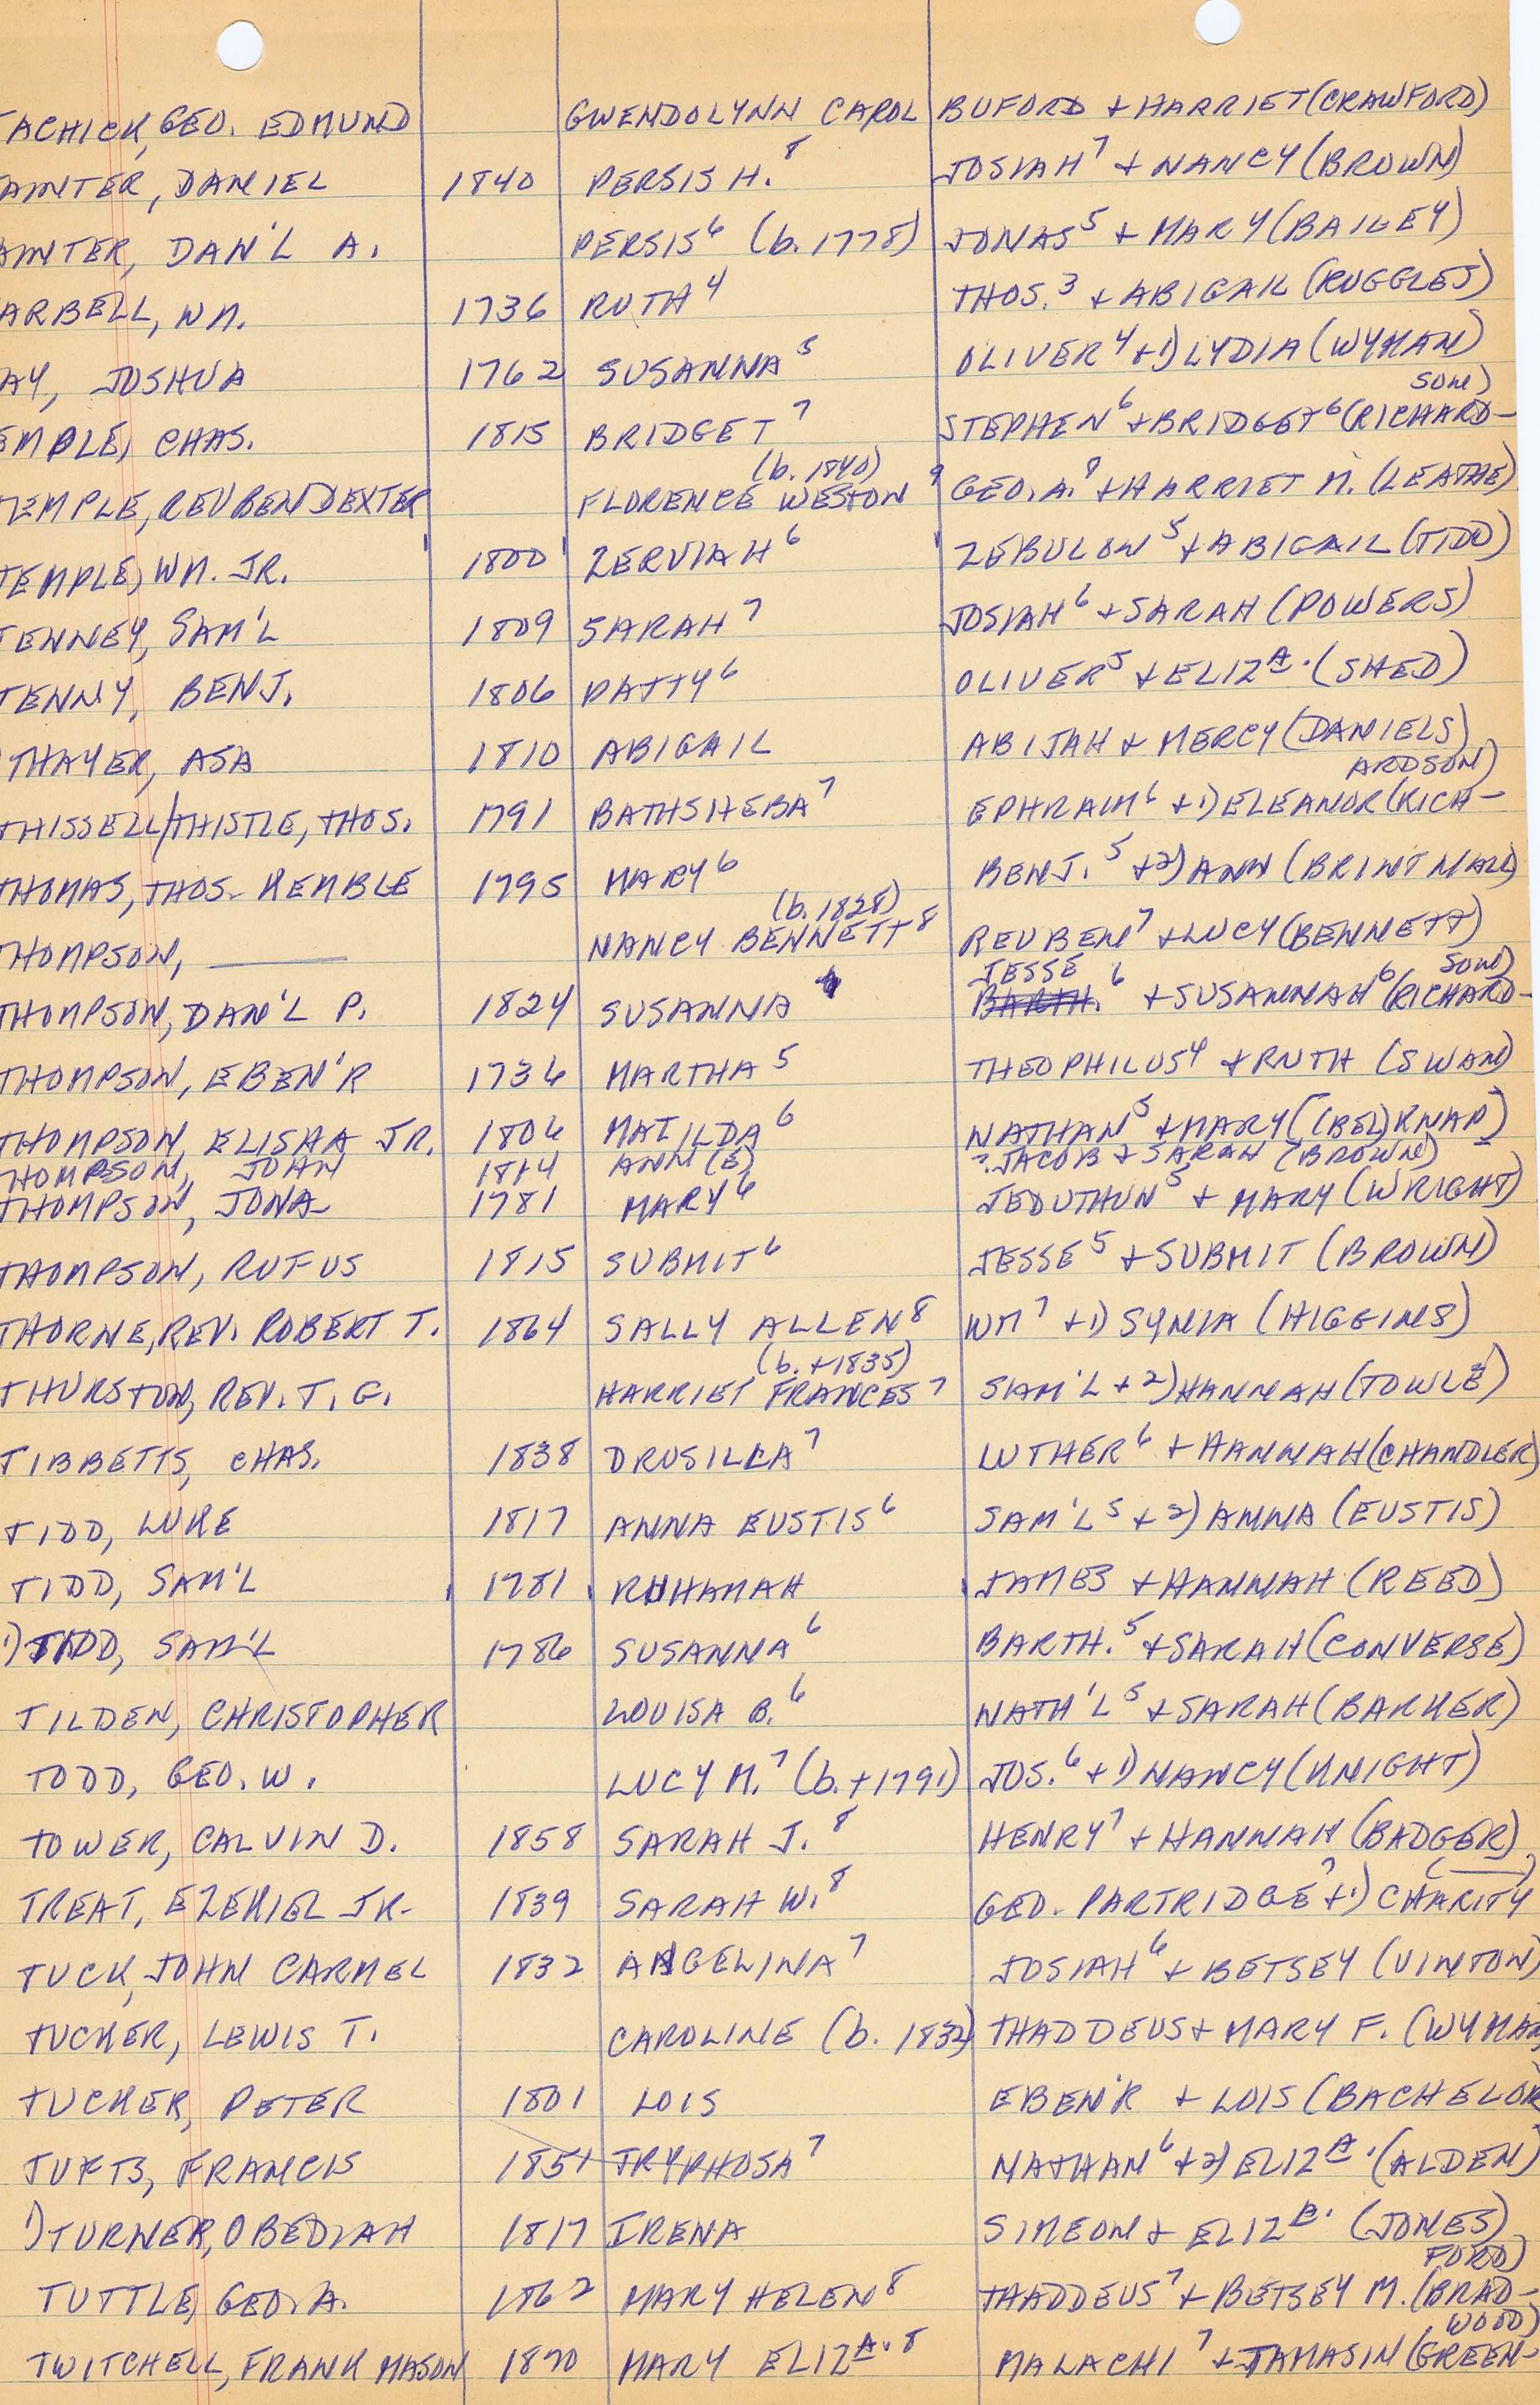 TACHICK, GEO. EDMUND GWENDOLYNN CAROL BUFORD + HARRIET (CRAWFORD)
AINTER, DANIEL 1840 PERSIS H.⁸ JOSIAH⁷ + NANCY (BROWN)
AINTER, DAN'L A. PERSIS⁶ (b. 1778) JONAS⁵ + MARY (BAILEY)
ARBELL, WM. 1736 RUTH⁴ THOS.³ + ABIGAIL (RUGGLES)
AY, JOSHUA 1762 SUSANNA⁵ OLIVER⁴ + 1) LYDIA (WYMAN)
SON)
EMPLE, CHAS. 1815 BRIDGET⁷ STEPHEN⁶ + BRIDGET⁶ (RICHARD-
(b. 1840)
TEMPLE, REUBEN DEXTER FLORENCE WESTON⁹ GEO. A.⁸ + HARRIET M. (LEATHE)
TEMPLE, WM. JR. 1800 ZERVIAH⁶ ZEBULON⁵ + ABIGAIL (TIDD)
TENNEY, SAM'L 1809 SARAH⁷ JOSIAH⁶ + SARAH (POWERS)
TENNY, BENJ. 1806 PATTY⁶ OLIVER⁵ + ELIZA. (SHED)
THAYER, ASA 1810 ABIGAIL ABIJAH + MERCY (DANIELS)
ARDSON)
THISSELL/THISTLE, THOS. 1791 BATHSHEBA⁷ EPHRAIM⁶ + 1) ELEANOR (RICH-
THOMAS, THOS. KEMBLE 1795 MARY⁶ BENJ.⁵ + 2) ANN (BRINTNALL)
(b. 1828)
THOMPSON, —— NANCY BENNETT⁸ REUBEN⁷ + LUCY (BENNETT)
JESSE SON)
THOMPSON, DAN'L P. 1824 SUSANNA BARTH.⁶ + SUSANNAH⁶ (RICHARD-
THOMPSON, EBEN'R 1736 MARTHA⁵ THEOPHILUS⁴ + RUTH (SWAN)
THOMPSON, ELISHA JR. 1806 MATILDA⁶ NATHAN⁵ + MARY ((BEL)KNAP)
THOMPSON, JOHN 1814 ANN (E) ?JACOB + SARAH (BROWN)
THOMPSON, JONA 1781 MARY⁶ JEDUTHUN⁵ + MARY (WRIGHT)
THOMPSON, RUFUS 1815 SUBMIT⁶ JESSE⁵ + SUBMIT (BROWN)
THORNE, REV. ROBERT T. 1864 SALLY ALLEN⁸ WM⁷ + 1) SYNIA (HIGGINS)
(b. +1835)
THURSTON, REV. T. G. HARRIET FRANCES⁷ SAM'L + 2) HANNAH (TOWLE)
TIBBETTS, CHAS. 1838 DRUSILLA⁷ LUTHER⁶ + HANNAH (CHANDLER)
TIDD, LUKE 1817 ANNA EUSTIS⁶ SAM'L⁵ + 2) ANNA (EUSTIS)
TIDD, SAM'L 1781 RUHAMAH JAMES + HANNAH (REED)
1) TIDD, SAM'L 1786 SUSANNA⁶ BARTH.⁵ + SARAH (CONVERSE)
TILDEN, CHRISTOPHER LOUISA B.⁶ NATH'L⁵ + SARAH (BARKER)
TODD, GEO. W. LUCY M.⁷ (b. +1791) JOS.⁶ + 1) NANCY (KNIGHT)
TOWER, CALVIN D. 1858 SARAH J.⁸ HENRY⁷ + HANNAH (BADGER)
(——)
TREAT, EZEKIEL JR. 1839 SARAH W.⁸ GEO. PARTRIDGE⁷ + 1) CHARITY
TUCK, JOHN CARMEL 1832 ANGELINA⁷ JOSIAH⁶ + BETSEY (VINTON)
TUCKER, LEWIS T. CAROLINE (b. 1832) THADDEUS + MARY F. (WYMAN
TUCKER, PETER 1801 LOIS EBEN'R + LOIS (BACHELOR
TUFTS, FRANCIS 1851 TRYPHOSA⁷ NATHAN⁶ + 2) ELIZA. (ALDEN)
1) TURNER, OBEDIAH 1817 IRENA SIMEON + ELIZA. (JONES)
FORD)
TUTTLE, GEO. A. 1862 MARY HELEN⁸ THADDEUS⁷ + BETSEY M. (BRAD-
WOOD)
TWITCHELL, FRANK MASON 1870 MARY ELIZA.⁸ MALACHI⁷ + TAMASIN (GREEN-